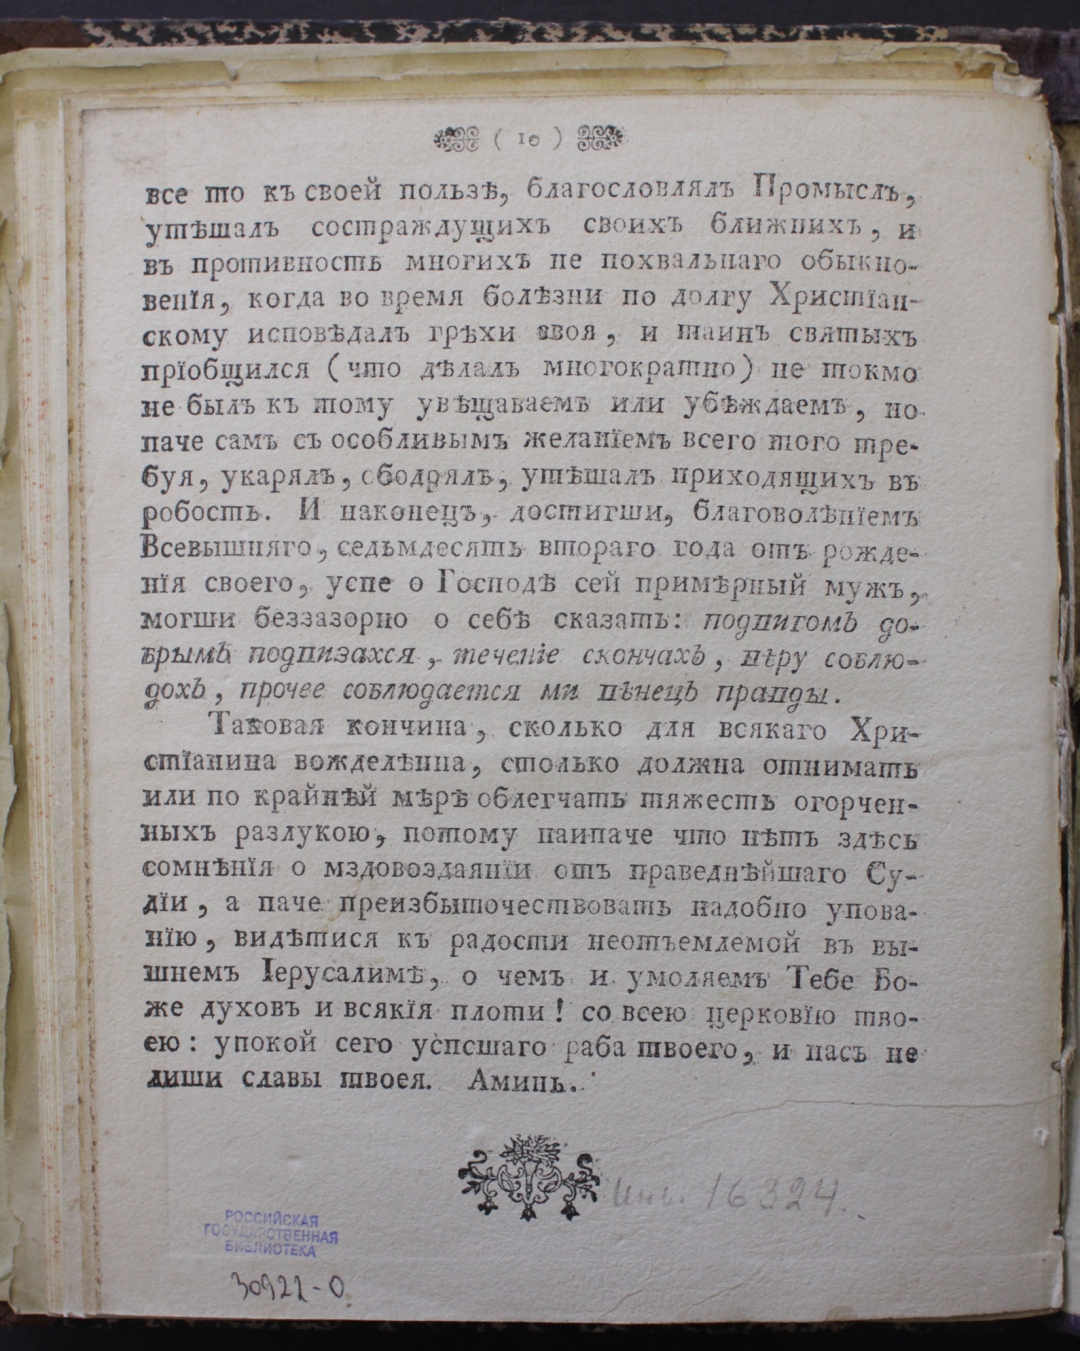 ( 10 )
все то къ своей пользѣ, благословлялъ Промыслъ,
утѣшалъ состраждущихъ своихъ ближнихъ, и
въ противность многихъ не похвальнаго обыкно-
венїя, когда во время болѣзни по долгу Христїан-
скому исповѣдалъ грѣхи своя, и таинъ святыхъ
прїобщился (что дѣлалъ многократно) не токмо
не былъ къ тому увѣщаваемъ или убѣждаемъ, но
паче самъ съ особливымъ желанїемъ всего того тре-
буя, укарялъ, ободрялъ, утѣшалъ приходящихъ въ
робость. И наконецъ, достигши, благоволѣнїемъ
Всевышняго, седьмдесятъ втораго года отъ рожде-
нїя своего, успе о Господѣ сей примѣрный мужъ,
могши беззазорно о себѣ сказать: подвигомъ до-
брымъ подвизахся, теченїе скончахъ, вѣру соблю-
дохъ, прочее соблюдается ми вѣнецъ правды.
Таковая кончина, сколько для всякаго Хри-
стїанина вожделѣнна, столько должна отнимать
или по крайнѣй мѣрѣ облегчать тяжесть огорчен-
ныхъ разлукою, потому наипаче что нѣтъ здѣсь
сомнѣнїя о мздовоздаянїи отъ праведнѣйшаго Су-
дїи, а паче преизбыточествовать надобно упова-
нїю, видѣтися къ радости неотъемлемой въ вы-
шнемъ Іерусалимѣ, о чемъ и умоляемъ Тебе Бо-
же духовъ и всякїя плоти! со всею церковїю тво-
ею: упокой сего успешаго раба твоего, и насъ не
лиши славы твоея. Аминь.
Инв. 16324.
РОССИЙСКАЯ
ГОСУДАРСТВЕННАЯ
БИБЛИОТЕКА
30922-0